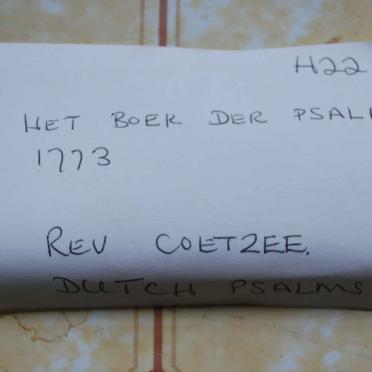 H22
HET BOEK DER PSAL
1773
REV COETZEE.
DUTCH PSALMS